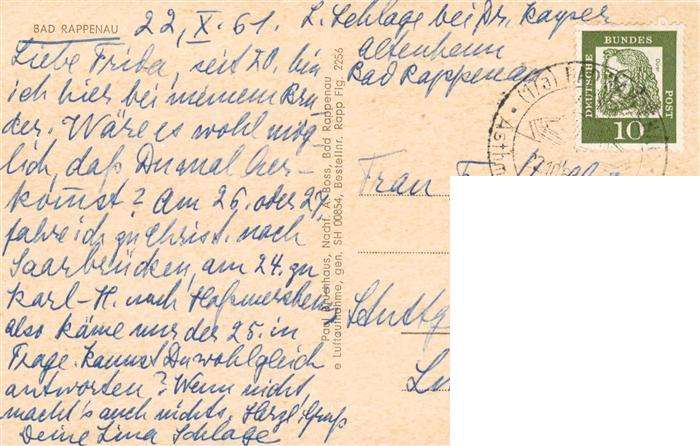 BAD RAPPENAU
22. X. 61.
L. Schlage bei Dr. Kayser
Altenheim
Bad Rappenau
Liebe Frida, seit 20. bin
ich hier bei meinem Bru-
der. Wäre es wohl mög-
lich, daß Du mal her-
kommst? Am 26. oder 27.
fahre ich zu Christ. nach
Saarbrücken, am 24. zu
Karl-H. nach Haßmersheim
also käme nur der 25. in
Frage. Kannst Du wohl gleich
antworten? Wenn nicht,
macht's auch nichts. Herzl. Gruß
Deine Lina Schlage
Nachf. A. Boss, Bad Rappenau
Luftaufnahme, gen. SH 00854, Bestellnr. Rapp Flg. 2256
DEUTSCHE BUNDES POST
10
Frau
Stuttg